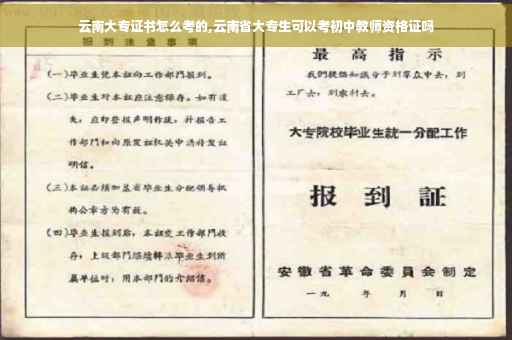 云南大专证书怎么考的,云南省大专生可以考初中教师资格证吗
报到注意事项
(一)毕业生凭本证向工作部门报到。
(二)毕业生对本证应注意保存。如有遗
失，应即登报声明作废，并报告工
作部门和向原发证机关申请补发证
明信。
(三)本证必须加盖省毕业生分配领导机
构公章方为有效。
(四)毕业生报到后，本证交工作部门收
存；上级部门继续转派毕业生到所
属单位时，用本部门的介绍信。
最高指示
我们提倡知识分子到群众中去，到
工厂去，到农村去。
大专院校毕业生统一分配工作
报到证
安徽省革命委员会制定
一九 年 月 日